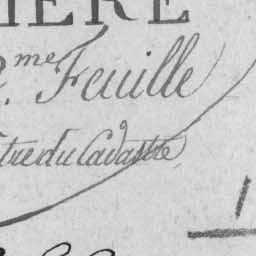 IÈRE
2.me Feuille
tre du Cadastre
1